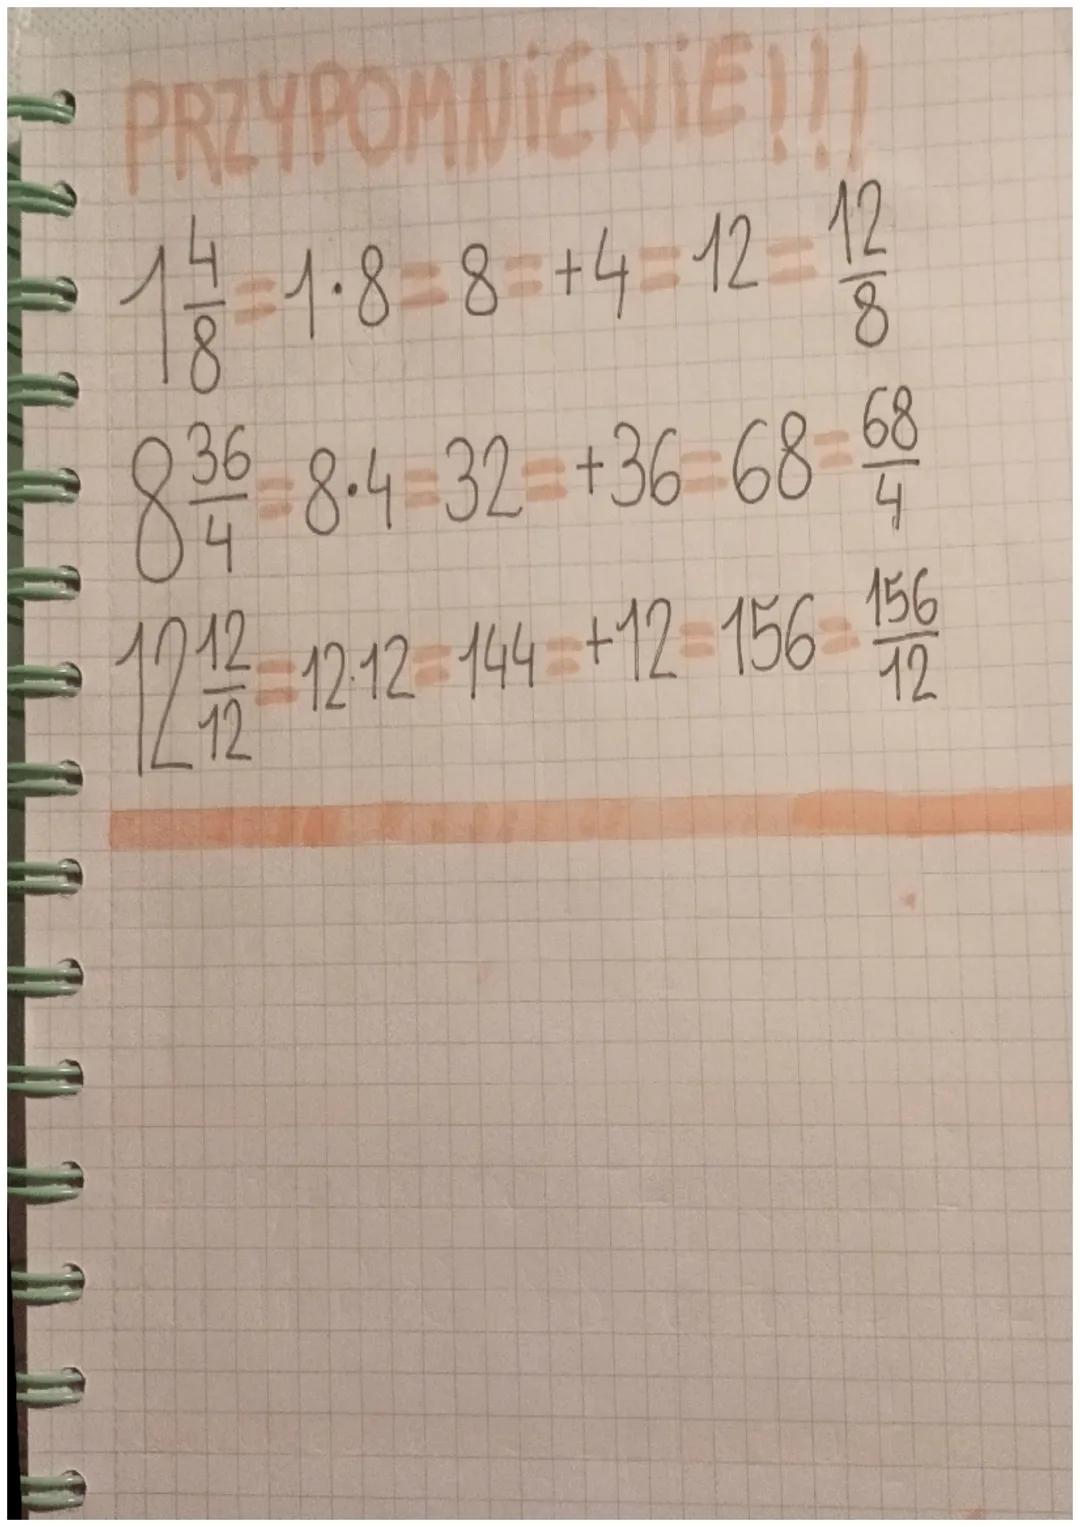 PRZYPOMNiENiE!!!
1 4/8 = 1·8 = 8 = +4 = 12 = 12/8
8 36/4 = 8·4 = 32 = +36 = 68 = 68/4
12 12/12 = 12·12 = 144 = +12 = 156 = 156/12